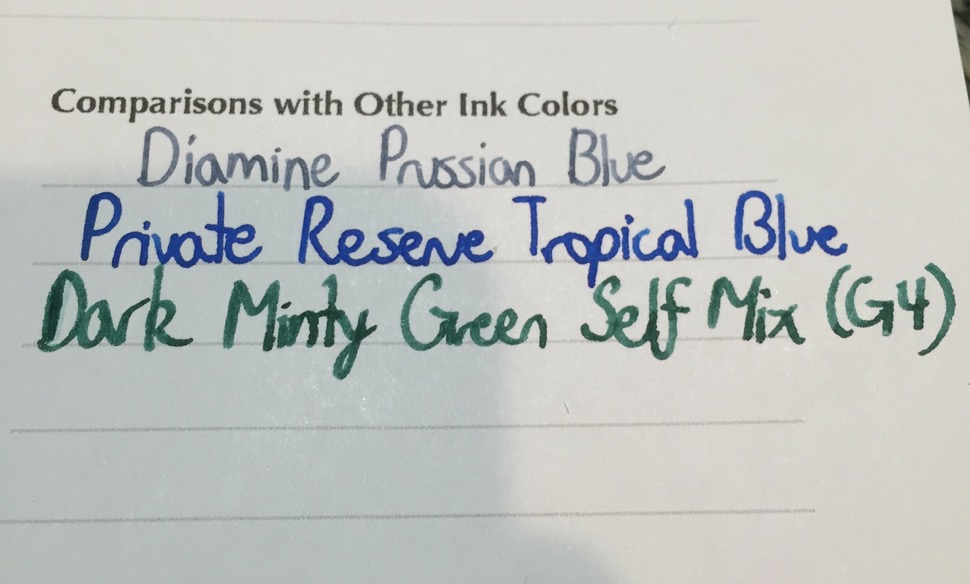 Comparisons with Other Ink Colors
Diamine Prussian Blue
Private Reserve Tropical Blue
Dark Minty Green Self Mix (G4)